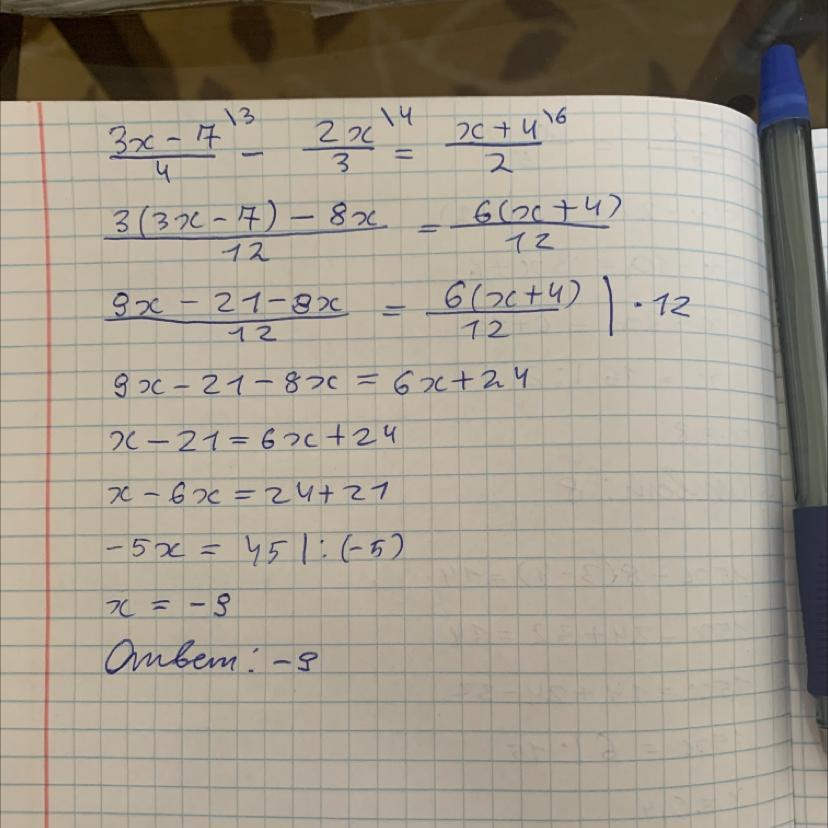 (3x - 7)/4 \3 - 2x/3 \4 = (x + 4)/2 \6
(3(3x - 7) - 8x)/12 = 6(x + 4)/12
(9x - 21 - 8x)/12 = 6(x + 4)/12 | · 12
9x - 21 - 8x = 6x + 24
x - 21 = 6x + 24
x - 6x = 24 + 21
-5x = 45 | : (-5)
x = -9
Ответ: -9